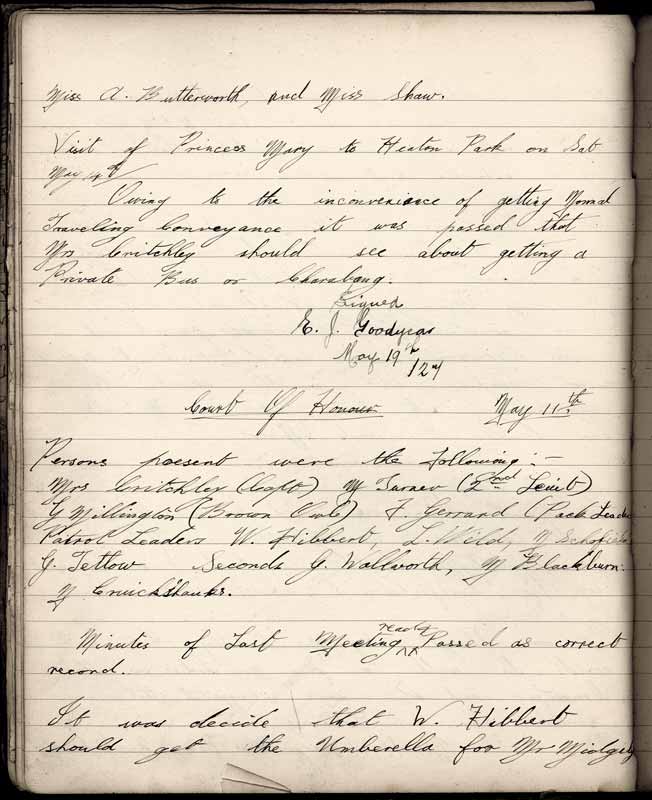 Miss A. Butterworth, and Miss Shaw.
Visit of Princess Mary to Heaton Park on Sat
May
Owing to the inconvenience of getting Normal
Traveling Conveyance it was passed that
Mrs Critchley should see about getting a
Private Bus or Charabang.
Signed
E. J. Goodyear
May 19th
/27
Court Of Honour May 11th
Persons present were the following:-
Mrs Critchley (Capt) M Turner (2nd Leiut)
G Millington (Brown Owl) F. Gerrard (Pack Leader
Patrol Leaders W. Hibbert, L. Wild, M Schofield
G. Tetlow Seconds G. Wallworth, M Blackburn.
M Cruickshanks.
Minutes of Last Meeting ready Passed as correct
record.
It was decide that W. Hibbert
should get the Umberella for Mr Midgely